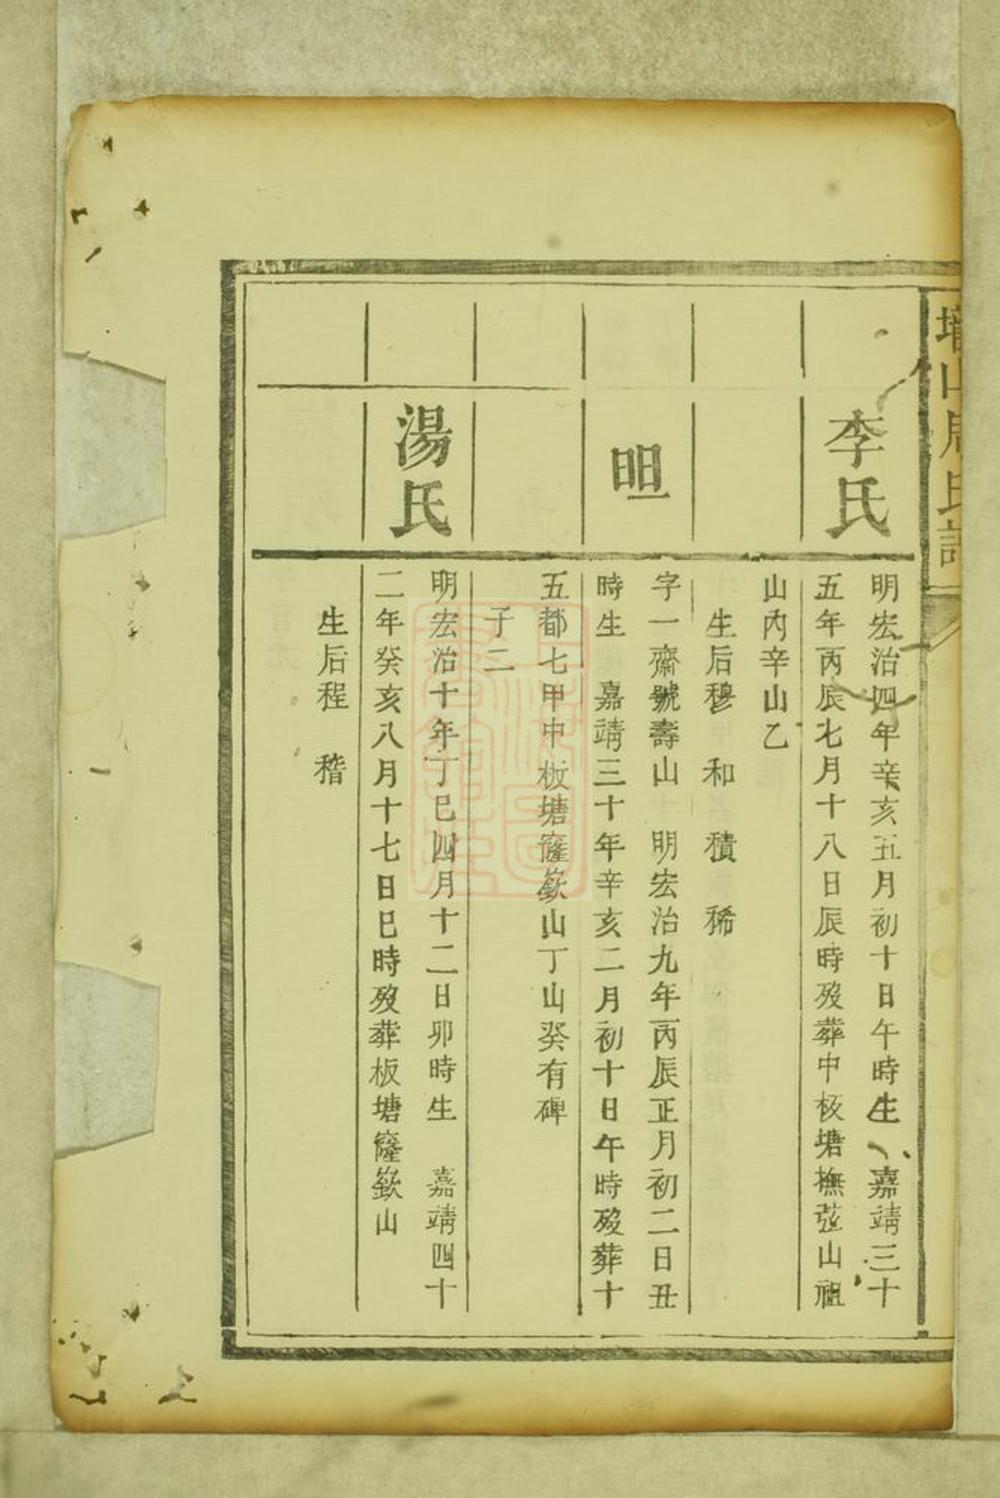 山周氏譜
李氏
明宏治四年辛亥五月初十日午時生 嘉靖三十
五年丙辰七月十八日辰時歿葬中板塘撫弦山祖
山內辛山乙
生后穆 和 積 稀
明
字一齋號壽山 明宏治九年丙辰正月初二日丑
時生 嘉靖三十年辛亥二月初十日午時歿葬十
五都七甲中板塘窿嶔山丁山癸有碑
子二
湯氏
明宏治十年丁巳四月十二日卯時生 嘉靖四十
二年癸亥八月十七日巳時歿葬板塘窿嶔山
生后程 稭